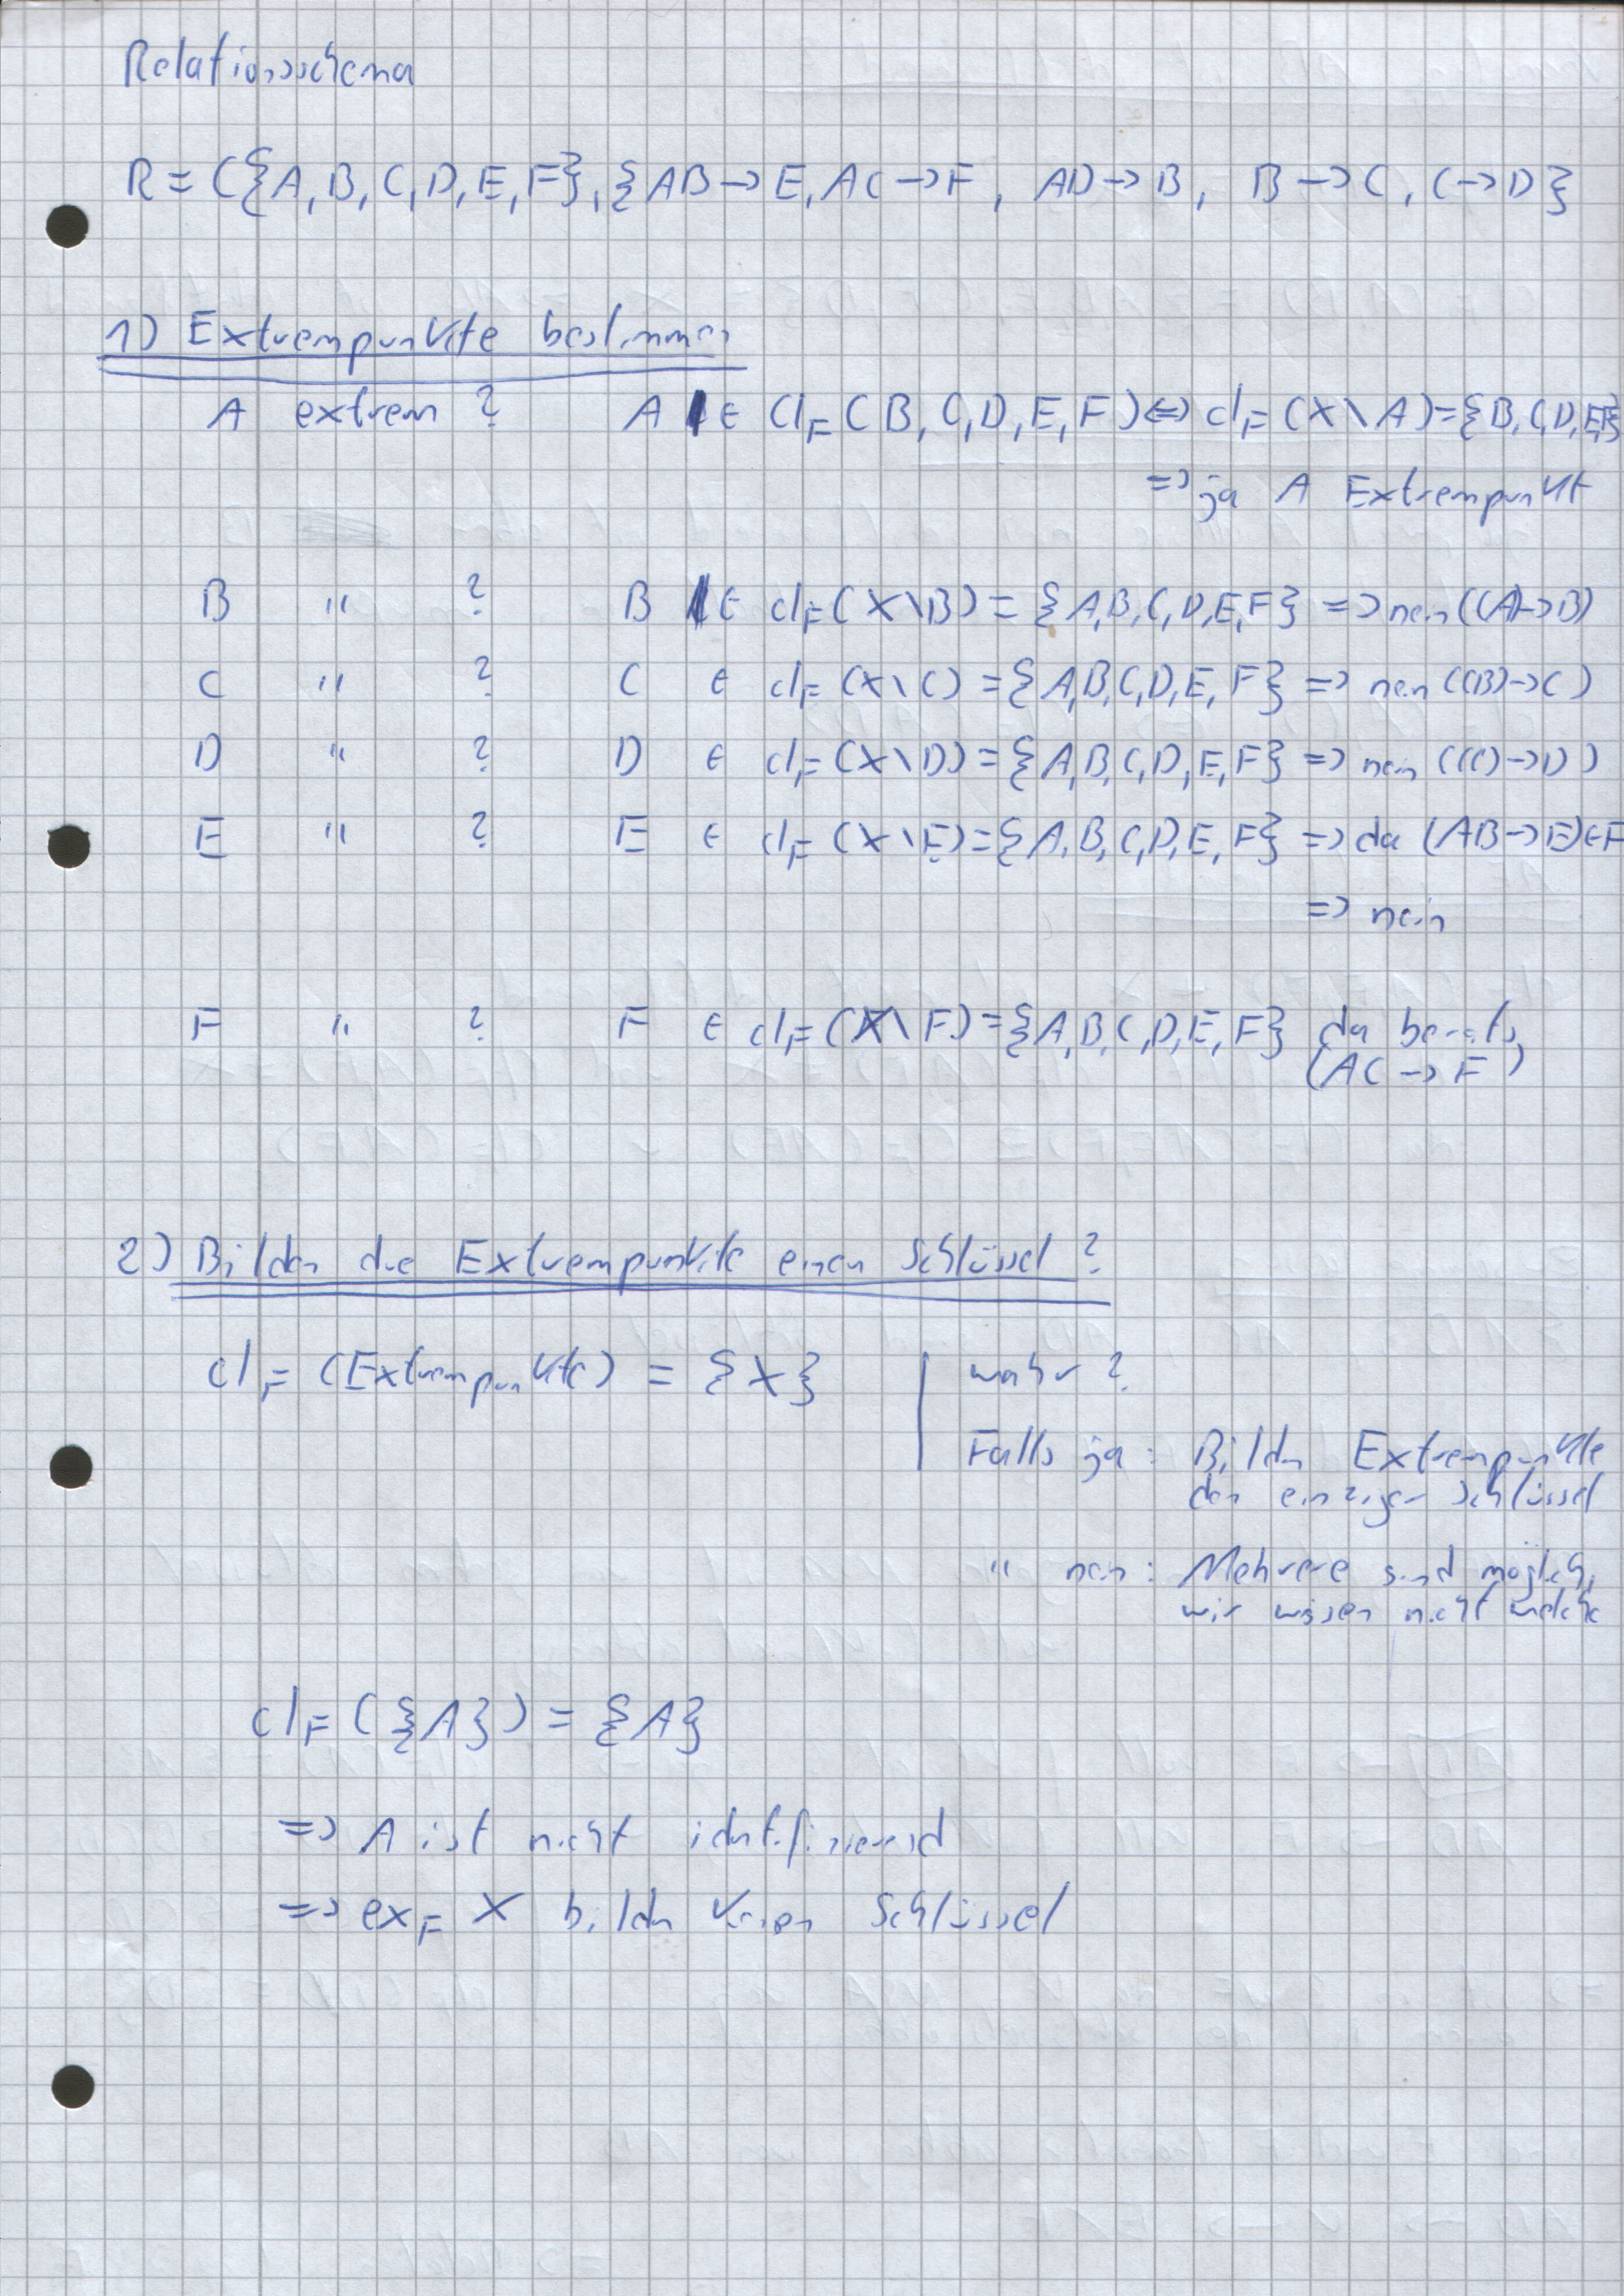 Relationsschema
R = ({A, B, C, D, E, F}, {AB → E, AC → F, AD → B, B → C, C → D}
1) Extrempunkte bestimmen
A extrem ? A ∈ Cl_F (B, C, D, E, F) ⇔ cl_F (X \ A) = {B, C, D, E, F}
=> ja A Extrempunkt
B " ? B ∈ cl_F (X \ B) = {A, B, C, D, E, F} => nein ((A)→B)
C " ? C ∈ cl_F (X \ C) = {A, B, C, D, E, F} => nein ((B)→C)
D " ? D ∈ cl_F (X \ D) = {A, B, C, D, E, F} => nein ((C)→D)
E " ? E ∈ cl_F (X \ E) = {A, B, C, D, E, F} => da (AB → E) ∈ F
=> nein
F " ? F ∈ cl_F (X \ F) = {A, B, C, D, E, F} da bereits
(AC → F)
2) Bilden die Extrempunkte einen Schlüssel ?
cl_F (Extrempunkte) = {X} | wahr ?
Falls ja : Bilden Extrempunkte
den einzigen Schlüssel
" nein : Mehrere sind möglich,
wir wissen nicht welche
cl_F ({A}) = {A}
=> A ist nicht identifizierend
=> ex_F X bilden keinen Schlüssel